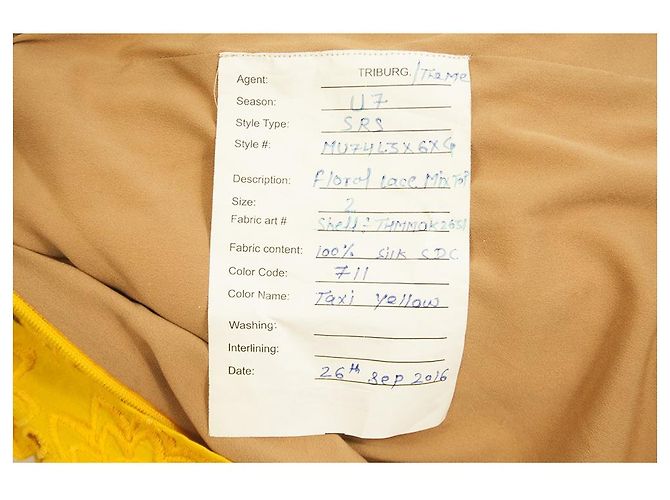 Agent: TRIBURG. / Theme
Season: U7
Style Type: SRS
Style #:
Description: Floral lace Mix Top
Size: 2
Fabric art # Shell:
Fabric content: 100% Silk SDC
Color Code: 711
Color Name: Taxi Yellow
Washing:
Interlining:
Date: 26th Sep 2016